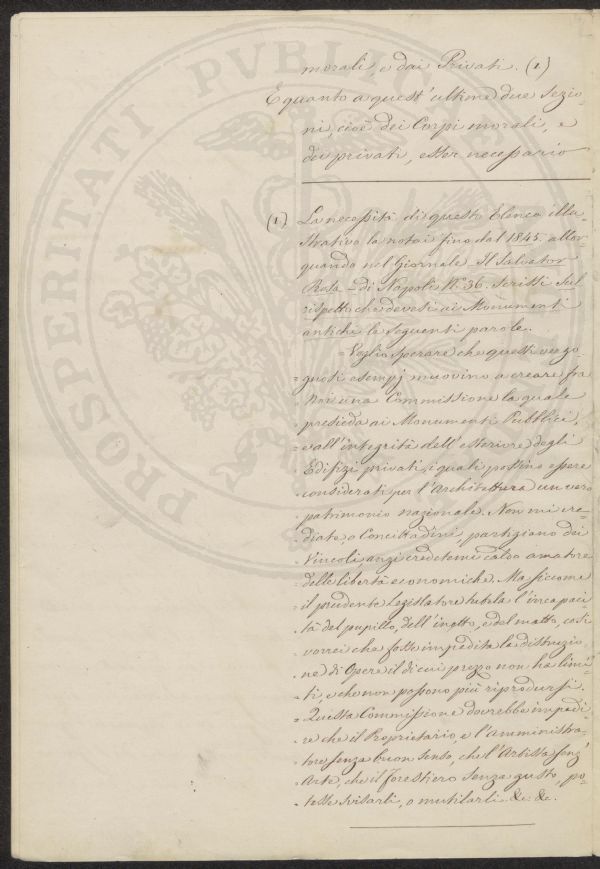 morali, e dai Privati. (1)
E quanto a quest'ultime due Sezio-
ni, cioè dei Corpi morali, e
dei privati, esser necessario
(1) La necessità di questo Elenco illu-
strativo la notai fino dal 1845. allor-
quando nel Giornale Il Salvator
Rosa - di Napoli N.° 36. scrissi sul
rispetto che devesi ai Monumenti
antichi le seguenti parole.
= Voglio sperare che questi vergo-
= gnosi esempj muovino a creare fra
= Noi una Commissione la quale
= presieda ai Monumenti Pubblici,
= e all'integrità dell'esteriore degli
= Edifizi privati, i quali possino essere
= considerati per l'Architettura un vero
= patrimonio nazionale. Non mi cre-
= diate, o Concittadini, partigiano dei
= Vincoli, anzi credetemi caldo amatore
= delle libertà economiche. Ma siccome
= il prudente Legislatore tutela l'incapaci-
= tà del pupillo, dell'inetto, e del matto, così
= vorrei che fosse impedita la distruzio-
= ne di Opere il di cui prezzo non ha limi-
= ti, e che non possono più riprodursi.
= Questa Commissione dovrebbe impedi-
= re che il Proprietario, e l'amministra-
= tore senza buon senso, che l'Artista senz'
= Arte, che il forestiero senza gusto, po-
= tesse svisarli, o mutilarli &c. &c.
PROSPERITATI PUBLICAE